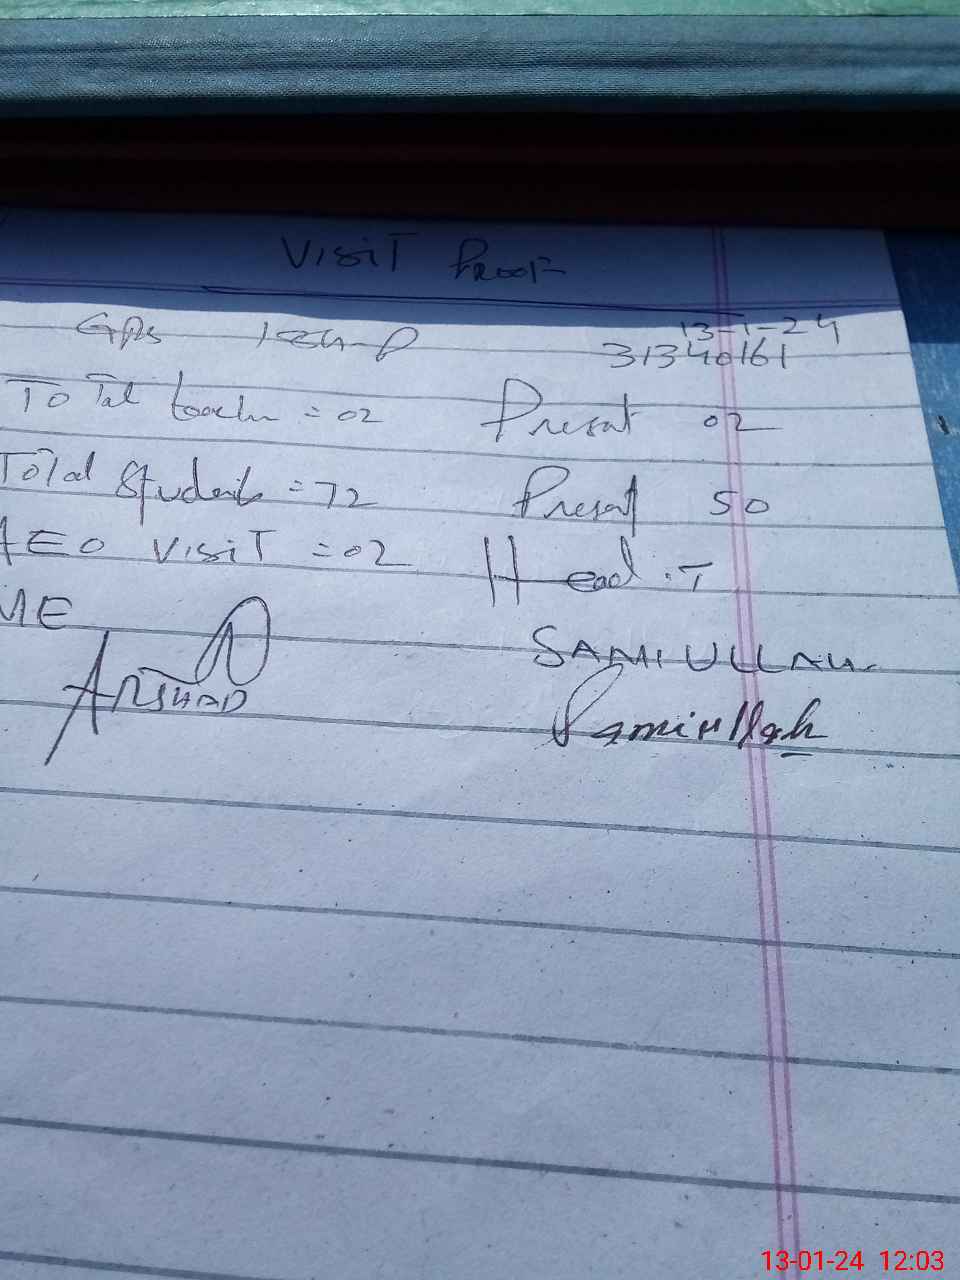 VISIT PROOF
GPS 13-1-24
31340161
TOTal teacher = 02 Present 02
TOTal Students = 72 Present 50
AEO VISIT = 02 Head.T
ME SAMIULLAH.
ARSHAD Samiullah
13-01-24 12:03